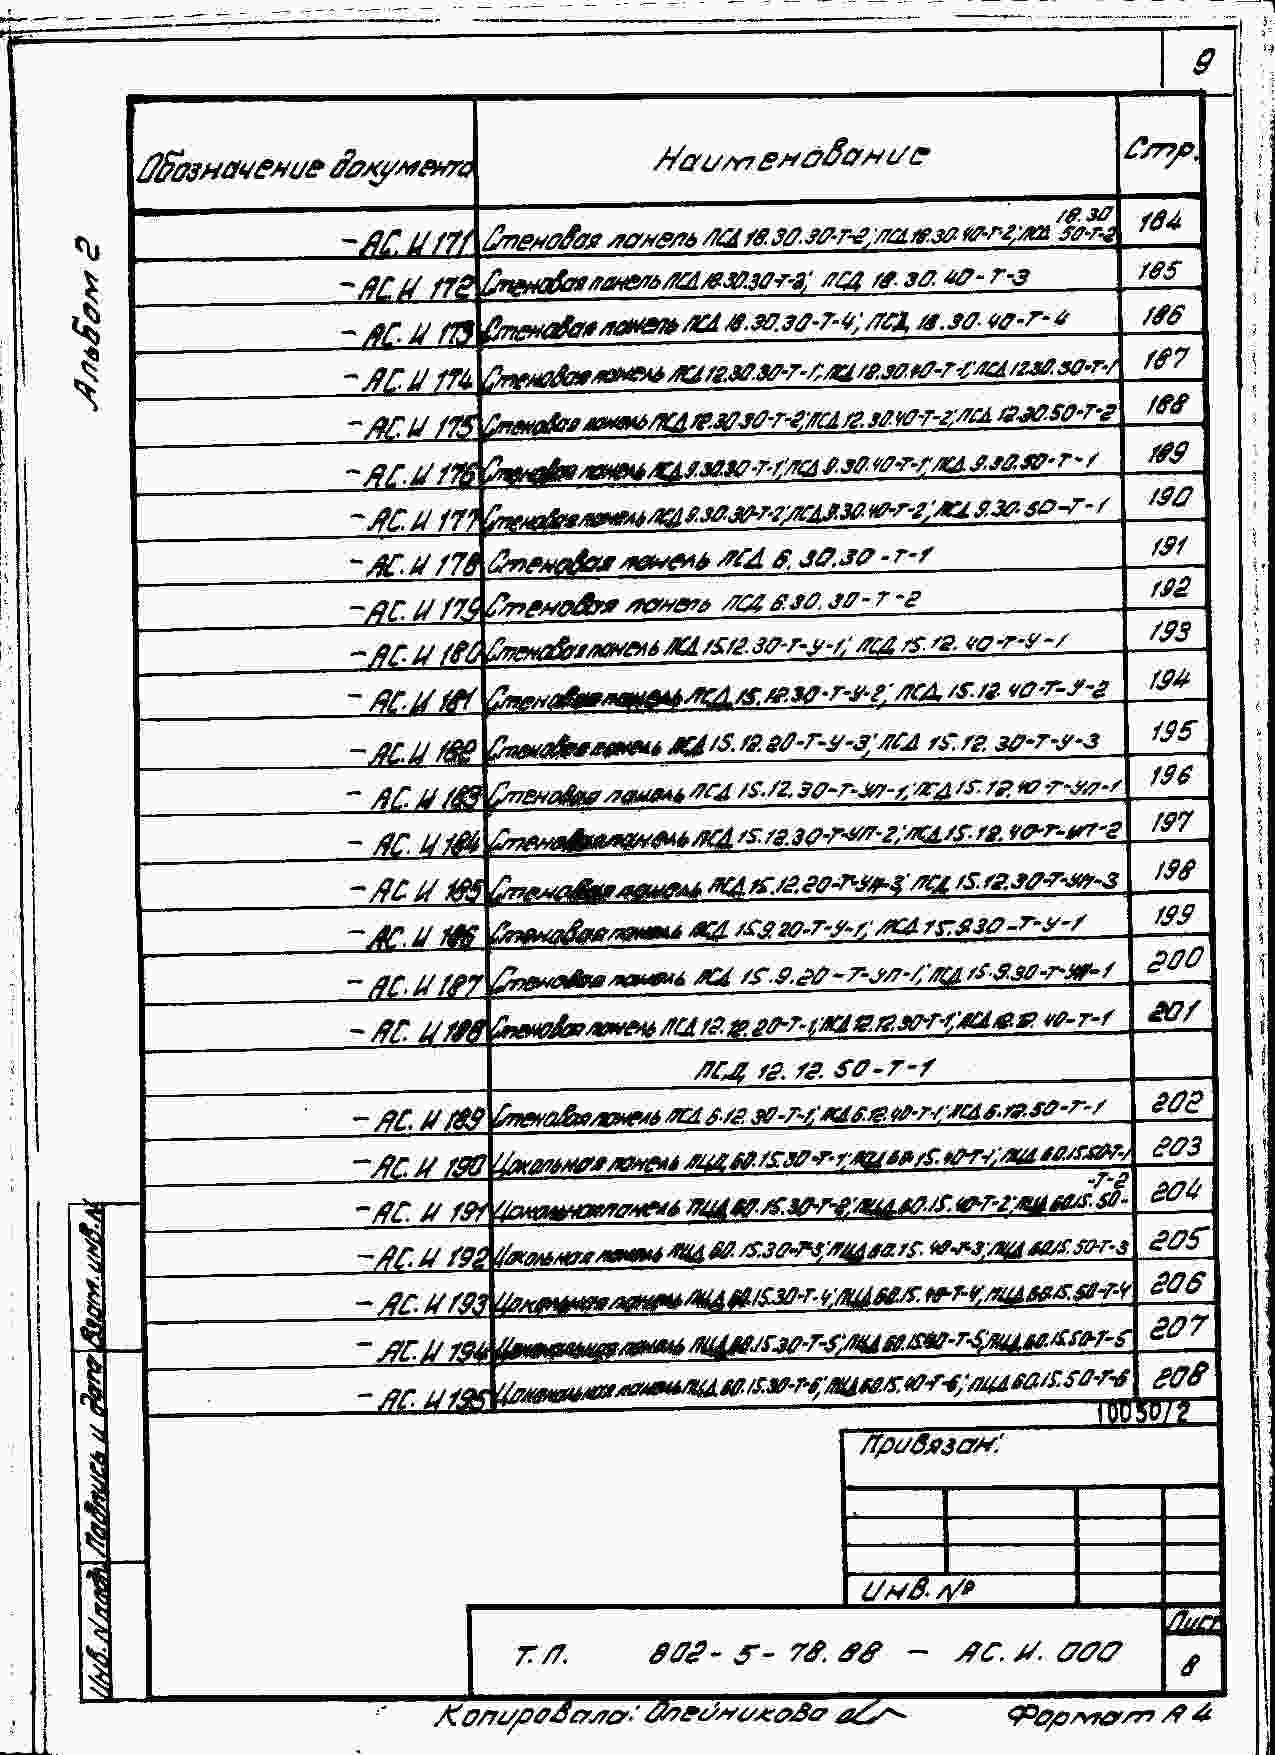 9
Альбом 2
Обозначение документа Наименование Стр.
-АС.И 171 Стеновая панель ПСД 18.30.30-Т-2; ПСД 18.30.40-Т-2; ПСД 18.30 50-Т-2 184
-АС.И 172 Стеновая панель ПСД 18.30.30-Т-3; ПСД 18.30.40-Т-3 185
-АС.И 173 Стеновая панель ПСД 18.30.30-Т-4; ПСД 18.30.40-Т-4 186
-АС.И 174 Стеновая панель ПСД 12.30.30-Т-1; ПСД 12.30.40-Т-1; ПСД 12.30.50-Т-1 187
-АС.И 175 Стеновая панель ПСД 12.30.30-Т-2; ПСД 12.30.40-Т-2; ПСД 12.30.50-Т-2 188
-АС.И 176 Стеновая панель ПСД 9.30.30-Т-1; ПСД 9.30.40-Т-1; ПСД 9.30.50-Т-1 189
-АС.И 177 Стеновая панель ПСД 9.30.30-Т-2; ПСД 9.30.40-Т-2; ПСД 9.30.50-Т-1 190
-АС.И 178 Стеновая панель ПСД 6.30.30-Т-1 191
-АС.И 179 Стеновая панель ПСД 6.30.30-Т-2 192
-АС.И 180 Стеновая панель ПСД 15.12.30-Т-У-1; ПСД 15.12.40-Т-У-1 193
-АС.И 181 Стеновая панель ПСД 15.12.30-Т-У-2; ПСД 15.12.40-Т-У-2 194
-АС.И 182 Стеновая панель ПСД 15.12.20-Т-У-3; ПСД 15.12.30-Т-У-3 195
-АС.И 183 Стеновая панель ПСД 15.12.30-Т-УП-1; ПСД 15.12.40-Т-УП-1 196
-АС.И 184 Стеновая панель ПСД 15.12.30-Т-УП-2; ПСД 15.12.40-Т-УП-2 197
-АС.И 185 Стеновая панель ПСД 15.12.20-Т-УП-3; ПСД 15.12.30-Т-УП-3 198
-АС.И 186 Стеновая панель ПСД 15.9.20-Т-У-1; ПСД 15.9.30-Т-У-1 199
-АС.И 187 Стеновая панель ПСД 15.9.20-Т-УП-1; ПСД 15.9.30-Т-УП-1 200
-АС.И 188 Стеновая панель ПСД 12.12.20-Т-1; ПСД 12.12.30-Т-1; ПСД 12.12.40-Т-1 201
ПСД 12.12.50-Т-1
-АС.И 189 Стеновая панель ПСД 6.12.30-Т-1; ПСД 6.12.40-Т-1; ПСД 6.12.50-Т-1 202
-АС.И 190 Цокольная панель ПЦД 60.15.30-Т-1; ПЦД 60.15.40-Т-1; ПЦД 60.15.50-Т-1 203
-АС.И 191 Цокольная панель ПЦД 60.15.30-Т-2; ПЦД 60.15.40-Т-2; ПЦД 60.15.50--Т-2 204
-АС.И 192 Цокольная панель ПЦД 60.15.30-Т-3; ПЦД 60.15.40-Т-3; ПЦД 60.15.50-Т-3 205
-АС.И 193 Цокольная панель ПЦД 60.15.30-Т-4; ПЦД 60.15.40-Т-4; ПЦД 60.15.50-Т-4 206
-АС.И 194 Цокольная панель ПЦД 60.15.30-Т-5; ПЦД 60.15.40-Т-5; ПЦД 60.15.50-Т-5 207
-АС.И 195 Цокольная панель ПЦД 60.15.30-Т-6; ПЦД 60.15.40-Т-6; ПЦД 60.15.50-Т-6 208
10030/2
Привязан:
Инв. №
Инв. N подл. Подпись и дата Взам. инв. N
Т.П. 802-5-78.88 - АС.И.000
Лист
8
Копировала: Олейникова
Формат А4